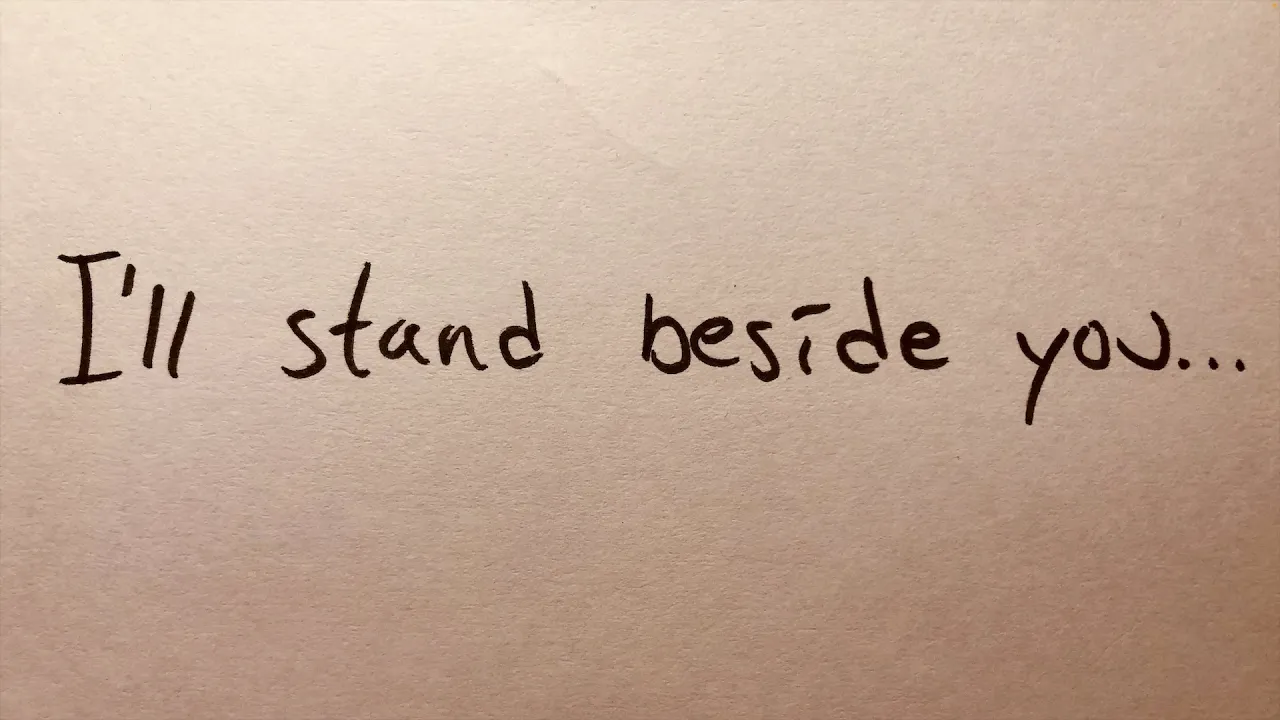 I'll stand beside you...